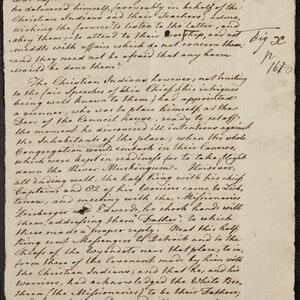 delivered himself, favourably in behalf of the
Christian Indians and their Teachers; admo-
nishing the former to listen to the latter, and
to attend to their Worship, and not
meddle with affairs which do not concern them;
and they need not be afraid that any harm
would be done them."
The Christian Indians however, not trusting
to the fair Speeches of this Chief, (his intrigues
being well known to them) had appointed
a runner, who was to place himself at the
Door of the Council house, ready to set off,
the moment he discovered ill intentions against
the Inhabitants of the place; when the whole
Congregation would embark in their Canoes,
which were kept in readiness for to take flight
down the River Muskingum. However,
all ending well, the half King with his chief
Captains and 82 of his Warriors came to Lich-
tenau, and meeting with the Missionaries
Zeisberger and Edwards, he shook hands with
them, addressing them "Father", to which
they made a proper reply. Next this half
king sent Messengers to Detroit and to the
Chiefs of the Wyandots near that place, to in-
form them of the Covenant made by him with
the Christian Indians; and that he, and his
Warriors, had acknowledged the White Bre-
thren (the Missionaries) to be their Fathers